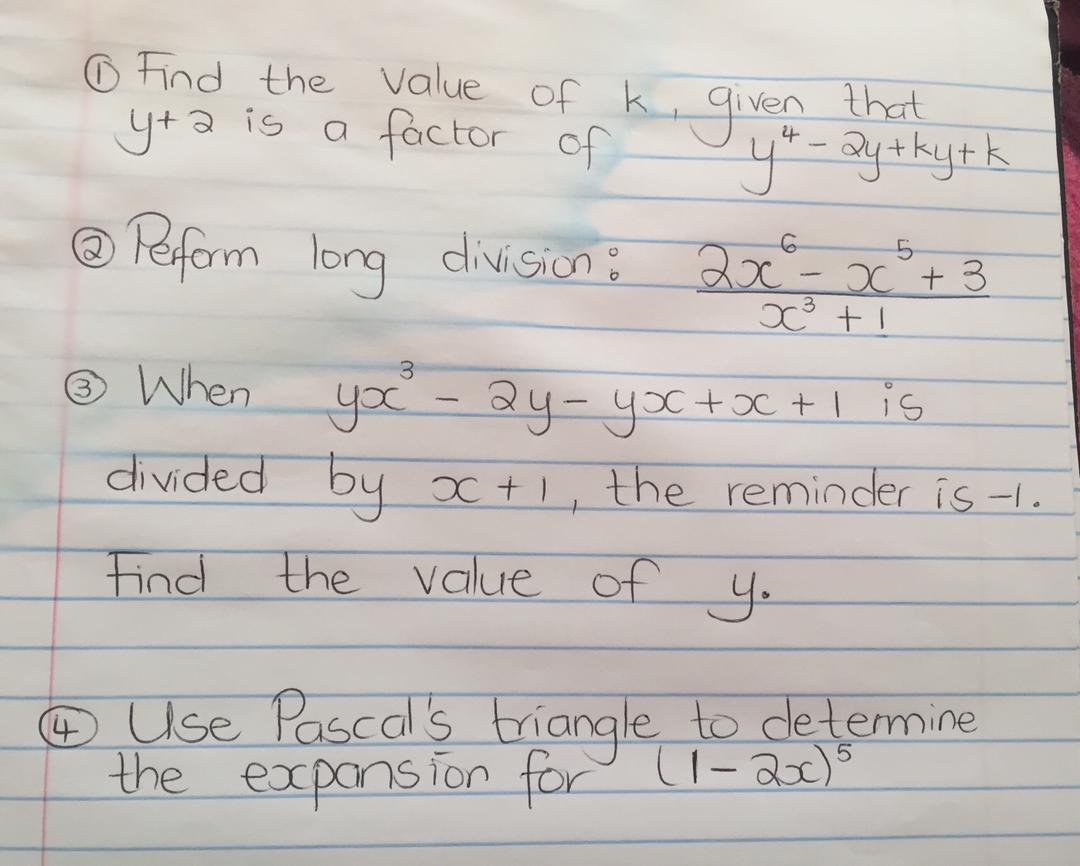 ① Find the value of k, given that
y+2 is a factor of y⁴ - 2y + ky + k
② Perform long division: 2x⁶ - x⁵ + 3
x³ + 1
③ When yx³ - 2y - yx + x + 1 is
divided by x + 1, the reminder is -1.
Find the value of y.
④ Use Pascal's triangle to determine
the expansion for (1 - 2x)⁵